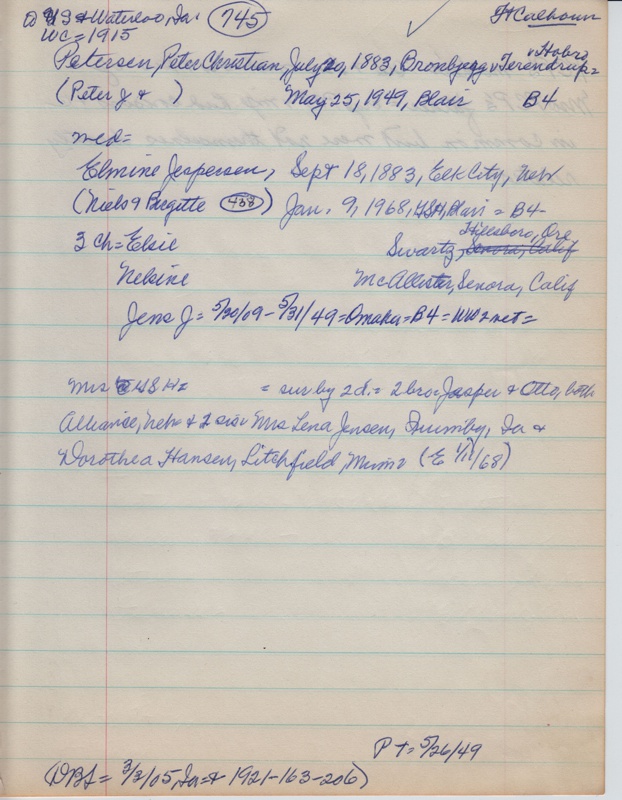 US & Waterloo, Ia. 745 Ft Calhoun
WC = 1915
Petersen, Peter Christian, July 20, 1883, Hobro
(Peter J & ) May 25, 1949, Blair B4
med=
Elmine Jespersen, Sept 18, 1883, Elk City, Nebr
(Niels & Birgitte 438) Jan. 9, 1968, Blair = B4
3 Ch = Elsie Swartz, Hillsboro, Ore Senora, Calif
Nelsine McAllister, Senora, Calif
Jens J = 5/30/09 - 5/31/49 = Omaha = B4 = WW2 vet =
Mrs = sur by 2 d. = 2 bro = Jasper & Otto, both
Alliance, Nebr & 2 sis = Mrs Lena Jensen, Ia &
Dorothea Hansen, Litchfield, Minn = (E 1/11/68)
PT = 5/26/49
(DBL = 3/3/05, Ia = & 1921-163-206)